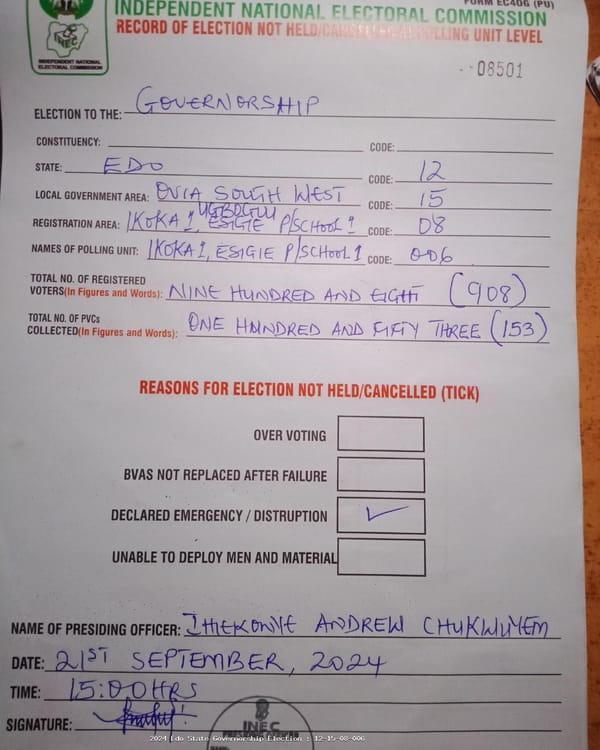 FORM EC40G (PU)
INDEPENDENT NATIONAL ELECTORAL COMMISSION
RECORD OF ELECTION NOT HELD/CANCELLED AT POLLING UNIT LEVEL
INEC
INDEPENDENT NATIONAL
ELECTORAL COMMISSION
08501
ELECTION TO THE: GOVERNORSHIP
CONSTITUENCY: CODE:
STATE: EDO CODE: 12
LOCAL GOVERNMENT AREA: OVIA SOUTH WEST CODE: 15
UGBOGUI
REGISTRATION AREA: IKOKA 1, ESIGIE P/SCHOOL 1 CODE: 08
NAMES OF POLLING UNIT: IKOKA 1, ESIGIE P/SCHOOL 1 CODE: 006
TOTAL NO. OF REGISTERED
VOTERS(In Figures and Words): NINE HUNDRED AND EIGHT (908)
TOTAL NO. OF PVCs
COLLECTED(In Figures and Words): ONE HUNDRED AND FIFTY THREE (153)
REASONS FOR ELECTION NOT HELD/CANCELLED (TICK)
OVER VOTING
BVAS NOT REPLACED AFTER FAILURE
DECLARED EMERGENCY / DISTRUPTION ✓
UNABLE TO DEPLOY MEN AND MATERIAL
NAME OF PRESIDING OFFICER: IHEKONYE ANDREW CHUKWUYEM
DATE: 21ST SEPTEMBER, 2024
TIME: 15:00HRS
SIGNATURE:
INEC
2024 Edo State Governorship Election : 12-15-08-006